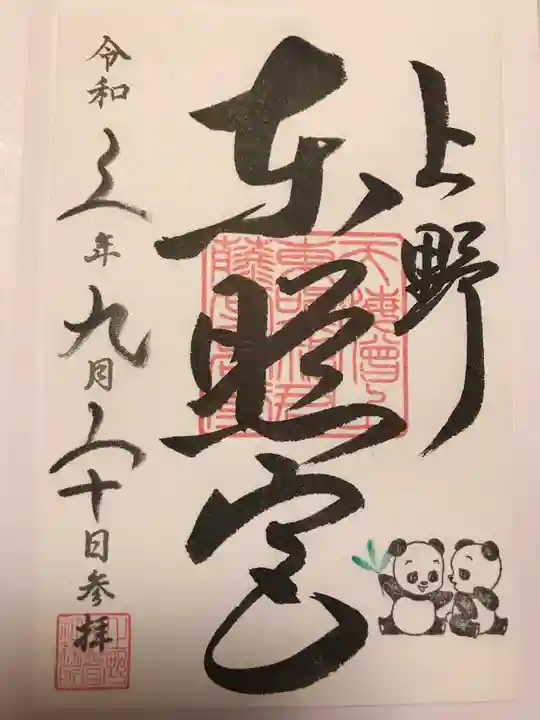 上野
東照宮
令和三年九月三十日参拝